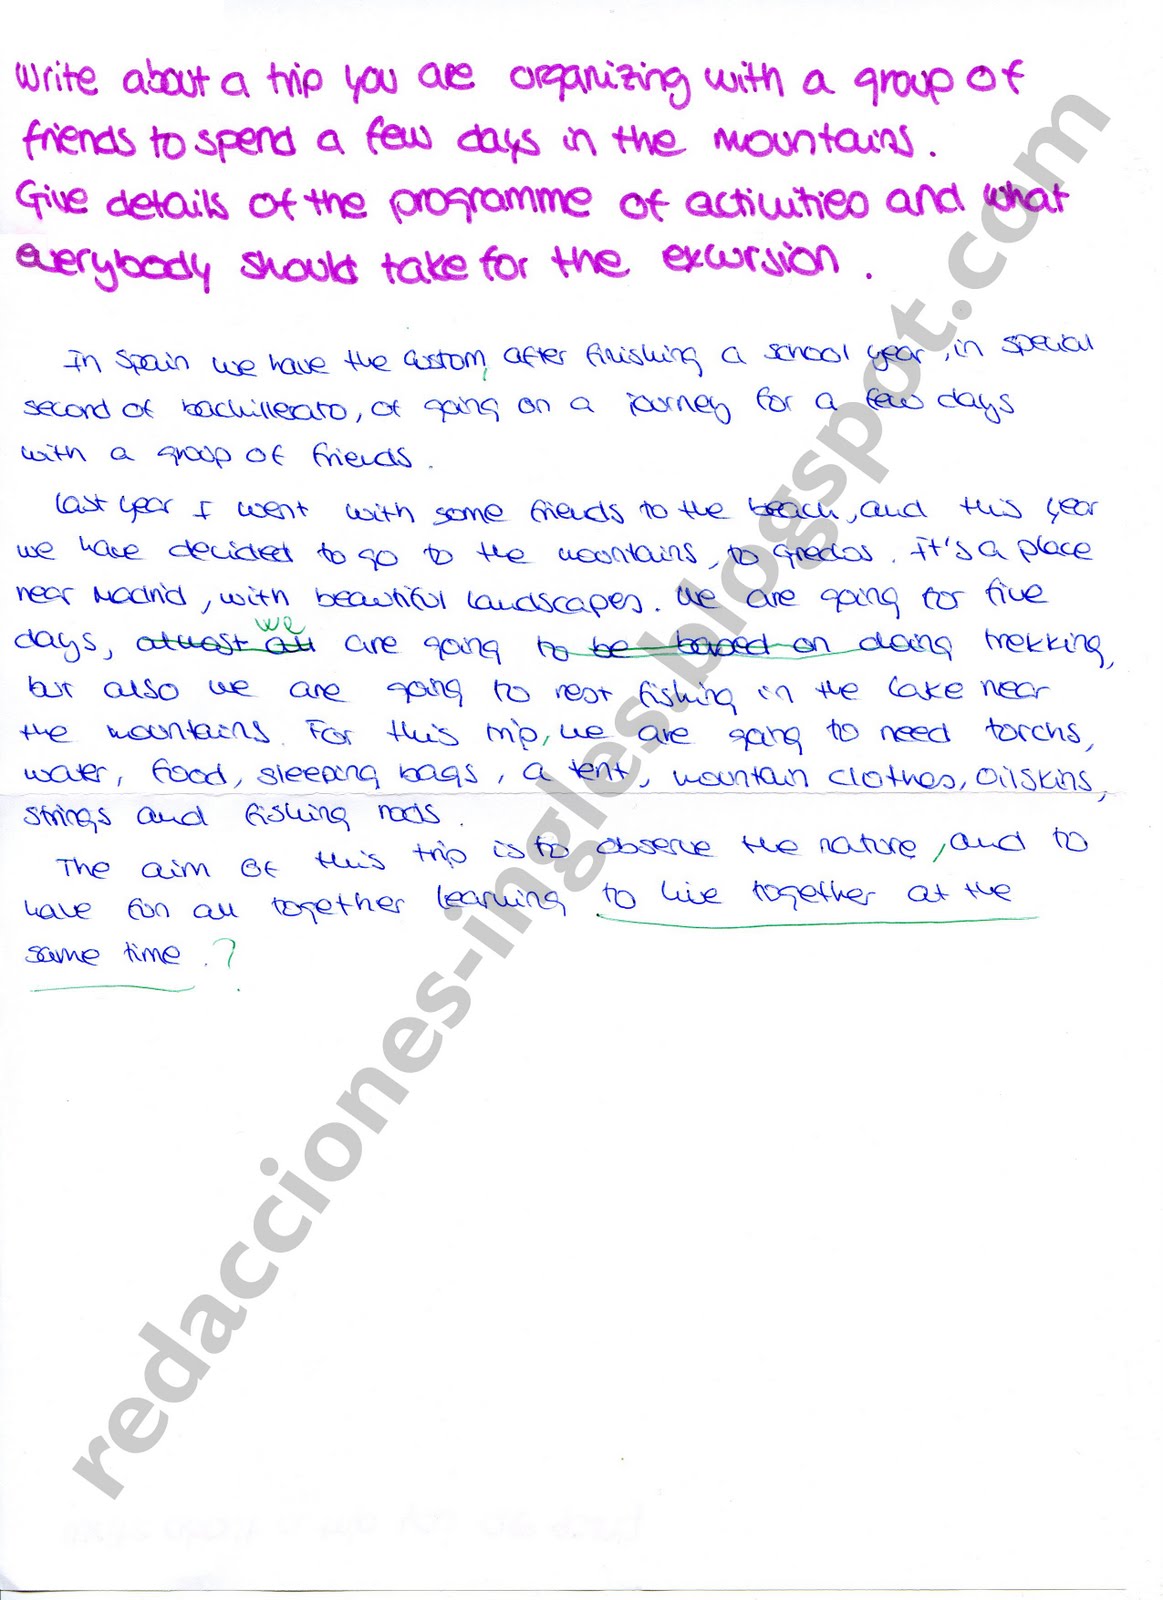 Write about a trip you are organizing with a group of
friends to spend a few days in the mountains.
Give details of the programme of activities and what
everybody should take for the excursion.
In Spain we have the custom, after finishing a school year, in special
second of bachillerato, of going on a journey for a few days
with a group of friends.
Last year I went with some friends to the beach, and this year
we have decided to go to the mountains, to Gredos. It's a place
near Madrid, with beautiful landscapes. We are going for five
we
days, almost all are going to be based on doing trekking,
but also we are going to rest fishing in the lake near
the mountains. For this trip, we are going to need torchs,
water, food, sleeping bags, a tent, mountain clothes, oilskins,
strings and fishing rods.
The aim of this trip is to observe the nature, and to
have fun all together learning to live together at the
same time. ?
redacciones-ingles.blogspot.com